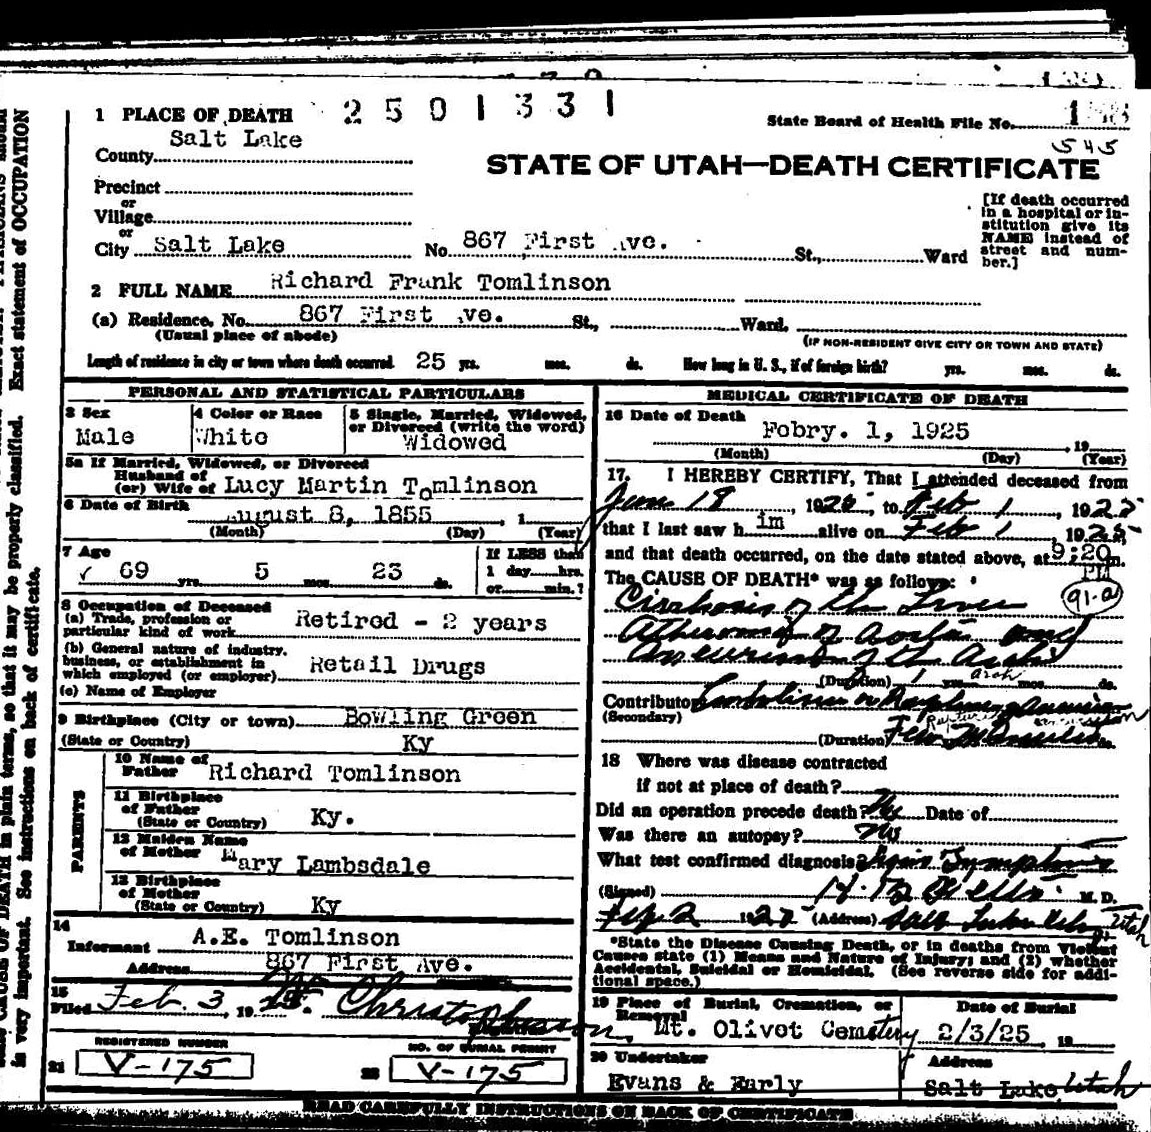 2501331
1 PLACE OF DEATH
State Board of Health File No.
545
County Salt Lake
STATE OF UTAH—DEATH CERTIFICATE
Precinct
or
Village
or
City Salt Lake No. 867 First Ave. St., Ward
[If death occurred
in a hospital or in-
stitution give its
NAME instead of
street and num-
ber.]
2 FULL NAME Richard Frank Tomlinson
(a) Residence, No. 867 First Ave. St., Ward,
(Usual place of abode)
(IF NON-RESIDENT GIVE CITY OR TOWN AND STATE)
Length of residence in city or town where death occurred 25 yrs. mos. ds. How long in U. S., if of foreign birth? yrs. mos. ds.
PERSONAL AND STATISTICAL PARTICULARS
3 Sex
Male
4 Color or Race
White
5 Single, Married, Widowed,
or Divorced (write the word)
Widowed
5a If Married, Widowed, or Divorced
Husband of
(or) Wife of Lucy Martin Tomlinson
6 Date of Birth August 8, 1855, 1
(Month) (Day) (Year)
7 Age
69 yrs. 5 mos. 23 ds.
If LESS than
1 day hrs.
or min.?
8 Occupation of Deceased
(a) Trade, profession or
particular kind of work Retired - 2 years
(b) General nature of industry,
business, or establishment in
which employed (or employer) Retail Drugs
(c) Name of Employer
9 Birthplace (City or town) Bowling Green
(State or Country) Ky
PARENTS
10 Name of
Father Richard Tomlinson
11 Birthplace
of Father
(State or Country) Ky.
12 Maiden Name
of Mother Mary Lambsdale
13 Birthplace
of Mother
(State or Country) Ky
14
Informant A.E. Tomlinson
Address 867 First Ave.
15
Filed Feb. 3, 19
REGISTERED NUMBER
21 V-175
NO. OF BURIAL PERMIT
22 V-175
MEDICAL CERTIFICATE OF DEATH
16 Date of Death
Febry. 1, 1925, 19
(Month) (Day) (Year)
17. I HEREBY CERTIFY, That I attended deceased from
Jan 18, 1925, to Feb 1, 1925
that I last saw him alive on Feb 1, 1925,
and that death occurred, on the date stated above, at 9:20 m.
PM
The CAUSE OF DEATH* was as follows:
91-a
Cirrhosis of the Liver
Atheroma of Aorta and
Aneurism of the Arch
Arch
(Duration) 1 yrs. mos. ds.
Contributory Embolism or Rupturing Aneurism
(Secondary)
(Duration) Few Minutes ds.
18 Where was disease contracted
if not at place of death?
Did an operation precede death? No Date of
Was there an autopsy? No
What test confirmed diagnosis? Symptoms
(Signed) M. D.
Feb 2 1925 (Address) Salt Lake City, Utah
*State the Disease Causing Death, or in deaths from Violent
Causes state (1) Means and Nature of Injury; and (2) whether
Accidental, Suicidal or Homicidal. (See reverse side for addi-
tional space.)
19 Place of Burial, Cremation, or
Removal
Mt. Olivet Cemetery
Date of Burial
2/3/25, 19
20 Undertaker
Evans & Early
Address
Salt Lake Utah
READ CAREFULLY INSTRUCTIONS ON BACK OF CERTIFICATE
CAUSE OF DEATH in plain terms, so that it may be properly classified. Exact statement of OCCUPATION
is very important. See instructions on back of certificate.